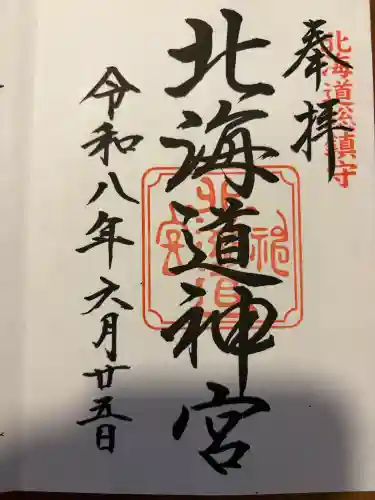 奉拝
北海道総鎮守
北海道神宮
令和八年六月廿五日